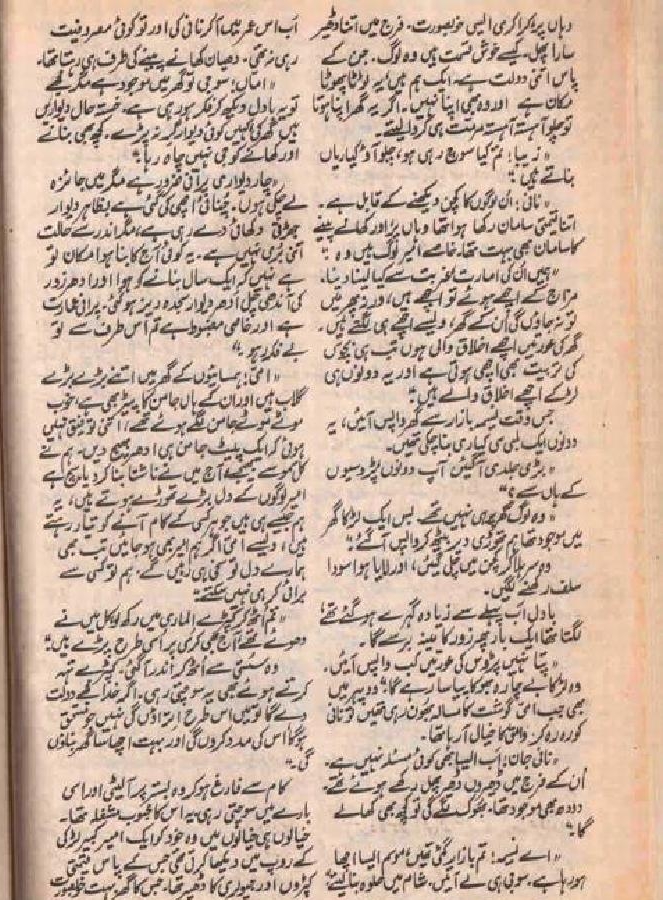 وہاں پر، کراکری ایسی خوبصورت۔ فرج میں اتنا ڈھیر
سارا پھل۔ کیسے خوش قسمت ہیں وہ لوگ۔ جن کے
پاس اتنی دولت ہے۔ ایک ہم ہیں یہ ٹوٹا پھوٹا
مکان ہے اور وہ بھی اپنا نہیں۔ اگر یہ گھر اپنا ہوتا
تو چلو آہستہ آہستہ مرمت ہی کروا لیتے۔
"زیبا! تم کیا سوچ رہی ہو، چلو آؤ کیاریاں
بناتے ہیں"
"نانی! ان لوگوں کا کچن دیکھنے کے قابل ہے۔
اتنا قیمتی سامان رکھا ہوا تھا وہاں پر اور کھانے پینے
کا سامان بھی بہت تھا، خاصے امیر لوگ ہیں وہ"
"ہمیں ان کی امارت، غربت سے کیا لینا دینا،
مزاج کے اچھے ہوئے تو اچھے ہیں، ورنہ پھر میں
تو نہ جاؤں گی ان کے گھر، ویسے اچھے ہی لگتے ہیں۔
گھر کی عورتیں اچھے اخلاق والی ہوں تب ہی بچوں
کی تربیت بھی اچھی ہوتی ہے اور یہ دونوں ہی
لڑکے اچھے اخلاق والے ہیں"
جس وقت نسیمہ بازار سے گھر واپس آئیں، یہ
دونوں ایک لمبی سی کیاری بنا چکی تھیں۔
"بڑی جلدی آ گئیں آپ دونوں پڑوسیوں
کے ہاں سے؟"
"وہ لوگ گھر پر ہی نہیں تھے۔ بس ایک لڑکا گھر
میں موجود تھا، ہم تھوڑی دیر بیٹھ کر واپس آ گئے"
وہ سر ہلا کر کچن میں چلی گئیں، اور لایا ہوا سودا
سلف رکھنے لگیں۔
بادل اب پہلے سے زیادہ گہرے ہو گئے تھے
لگتا تھا ایک بار پھر زور کا مینہ برسے گا۔
"پتا نہیں پڑوس کی عورتیں کب واپس آئیں۔
وہ لڑکا بے چارہ بھوکا پیاسا رہے گا" دوپہر میں
بھی جب امی گوشت کا مسالہ بھون رہی تھیں تو نانی
کو رہ رہ کر واثق کا خیال آ رہا تھا۔
"نانی جان! اب ایسا بھی کوئی مسئلہ نہیں ہے۔
ان کے فرج میں ڈھیروں ڈھیر پھل رکھے ہوئے تھے۔
دودھ بھی موجود تھا، بھوک لگے گی تو کچھ بھی کھا لے
گا"
"اے نسیمہ! تم بازار گئی تھیں، موسم ایسا اچھا
ہو رہا ہے۔ سوجی ہی لے آئیں۔ شام میں حلوہ بنا لیتے"
اب اس عمر میں آ کر نانی کی اور تو کوئی مصروفیت
رہی نہ تھی۔ دھیان کھانے پینے کی طرف ہی رہتا تھا۔
"اماں! سوجی تو گھر میں موجود ہے مگر مجھے
تو یہ بادل دیکھ کر فکر ہو رہی ہے۔ خستہ حال دیواریں
ہیں گھر کی کہیں کوئی دیوار گر نہ پڑے۔ کچھ بھی بنانے
اور کھانے کو جی نہیں چاہ رہا"
"چار دیواری پرانی ضرور ہے مگر میں جائزہ
لے چکی ہوں۔ چنائی اچھی کی گئی ہے بظاہر دیوار
جھڑتی دکھائی دے رہی ہے، مگر اندر سے حالت
اتنی بری نہیں ہے۔ یہ کوئی آج کا بنا ہوا مکان تو
ہے نہیں کہ ایک سال بنانے کو ہوا اور ادھر زور
کی آندھی چلی ادھر دیوار سجدہ ریز ہو گئی۔ پرانی عمارت
ہے اور خاصی مضبوط ہے تم اس طرف سے تو
بے فکر رہو"
"امی! ہمسائیوں کے گھر میں اتنے بڑے بڑے
گلاب ہیں اور ان کے ہاں جامن کا پیڑ بھی ہے خوب
موٹے موٹے جامن لگے ہوئے تھے، اتنی توفیق نہیں
ہوئی کہ ایک پلیٹ جامن ہی ادھر بھیج دیں۔ ہم نے
کل سموسے بھیجے، آج میں نے ناشتا بنا کر دیا، سچ ہے
امیر لوگوں کے دل بڑے تھوڑے ہوتے ہیں، یہ
ہم جیسے ہی ہیں جو ہر کسی کے کام آنے کو تیار رہتے
ہیں، ویسے امی اگر ہم امیر بھی ہو جائیں تب بھی
ہمارے دل تو سخی ہی رہیں گے، ہم تو کسی سے
برائی کر ہی نہیں سکتے"
"تم اٹھ کر کپڑے الماری میں رکھ لو کل میں نے
دھوئے تھے آج بھی کرسی پر اسی طرح پڑے ہیں"
وہ سستی سے اٹھ کر اندر آ گئی۔ کپڑے تہہ
کرتے ہوئے بھی یہ سوچتی رہی۔ اگر خدا مجھے دولت
دے گا تو میں اس طرح اتراؤں گی نہیں جو مستحق
ہو گا اس کی مدد کروں گی اور بہت اچھا سا گھر بناؤں
گی۔"
کام سے فارغ ہو کر وہ بستر پر آ لیٹی اور اسی
بارے میں سوچتی رہی یہ اس کا محبوب مشغلہ تھا۔
خیالوں ہی خیالوں میں وہ خود کو ایک امیر کبیر لڑکی
کے روپ میں دیکھا کرتی تھی جس کے پاس قیمتی
کپڑوں اور جیولری کا ڈھیر تھا، جس کا گھر بہت خوبصورت